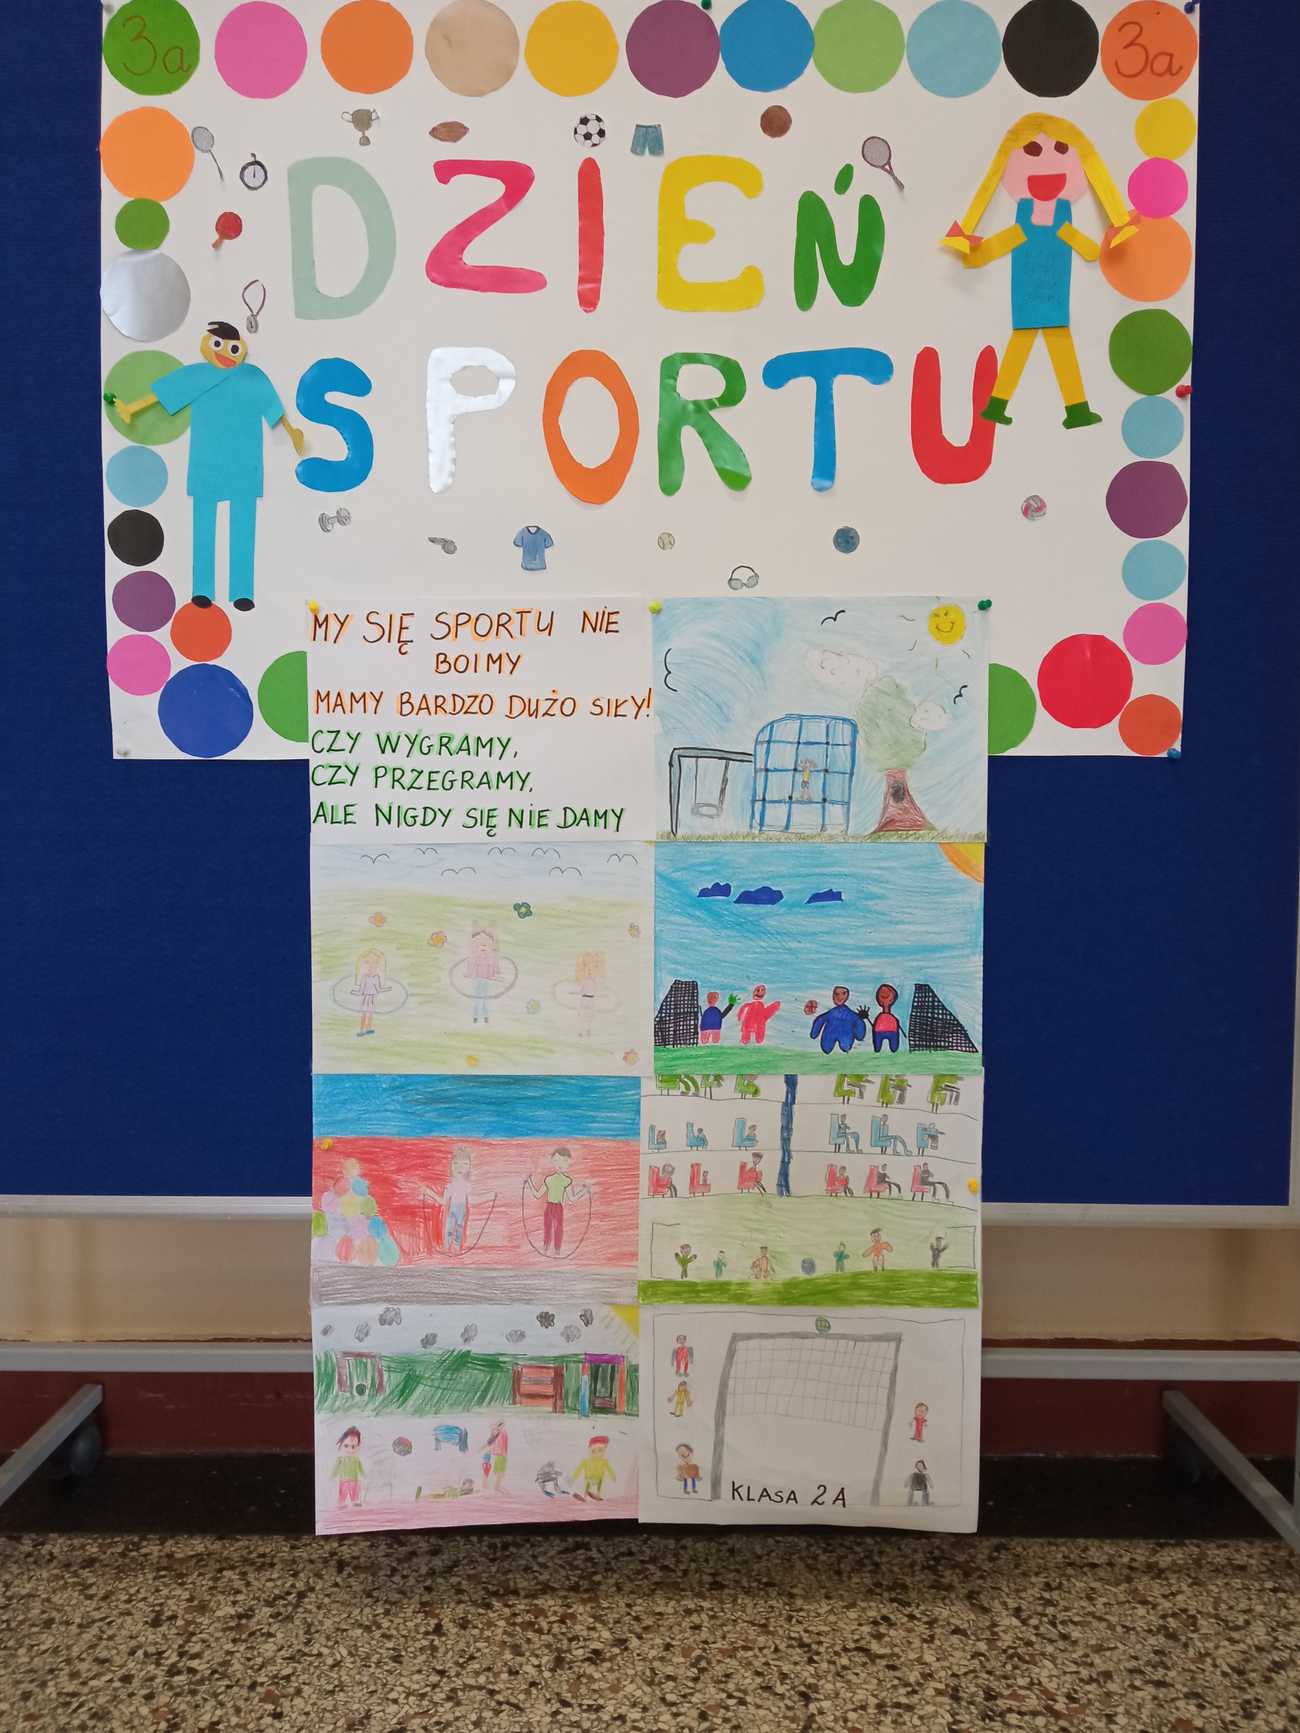 3a 3a
DZIEŃ
SPORTU
MY SIĘ SPORTU NIE
BOIMY
MAMY BARDZO DUŻO SIŁY!
CZY WYGRAMY,
CZY PRZEGRAMY,
ALE NIGDY SIĘ NIE DAMY
KLASA 2A